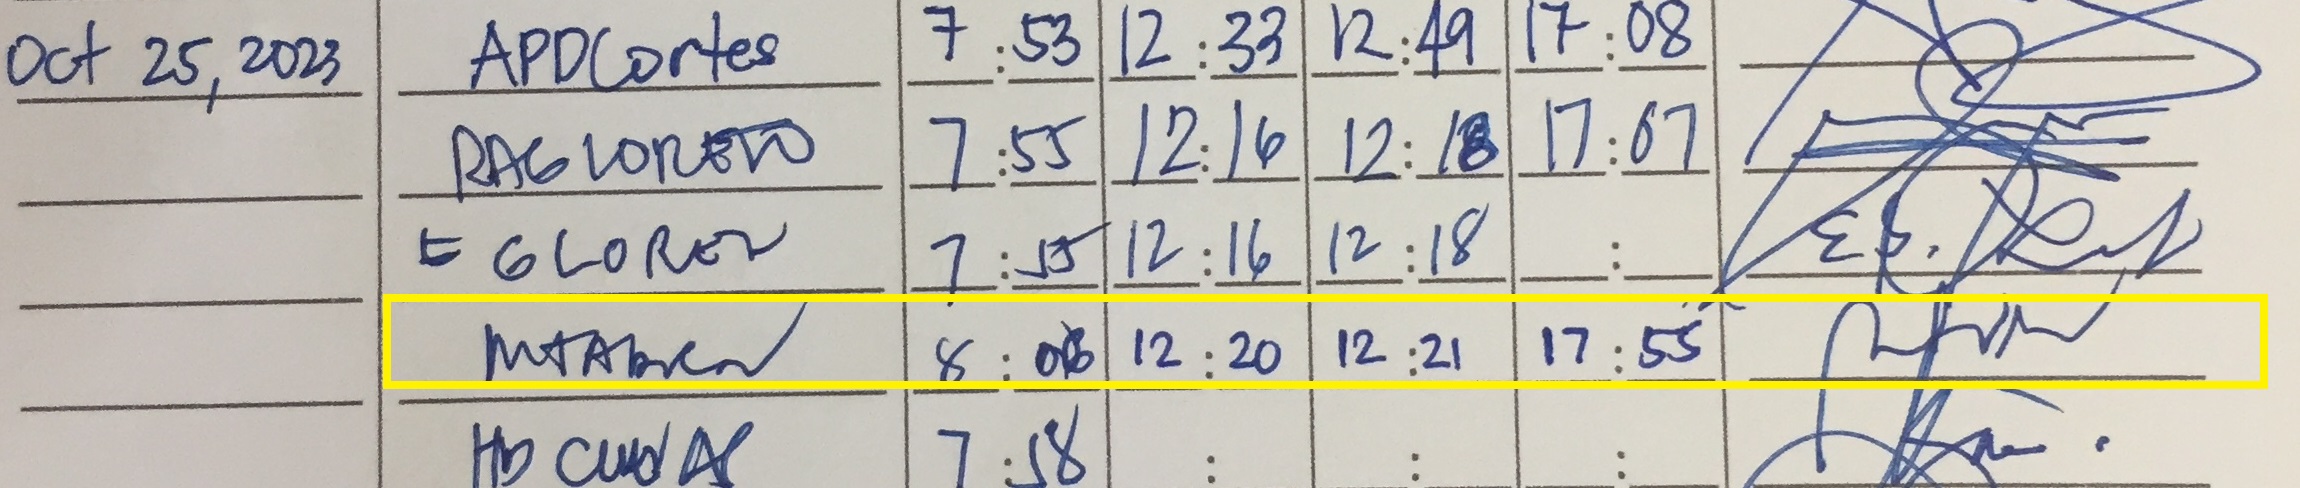 Oct 25, 2023 APDCortes 7:53 12:33 12:49 17:08
RAGLORETO 7:55 12:16 12:18 17:07
E GLOREN 7:55 12:16 12:18 :
8: 12:20 12:21 17:55
7:58 : : :